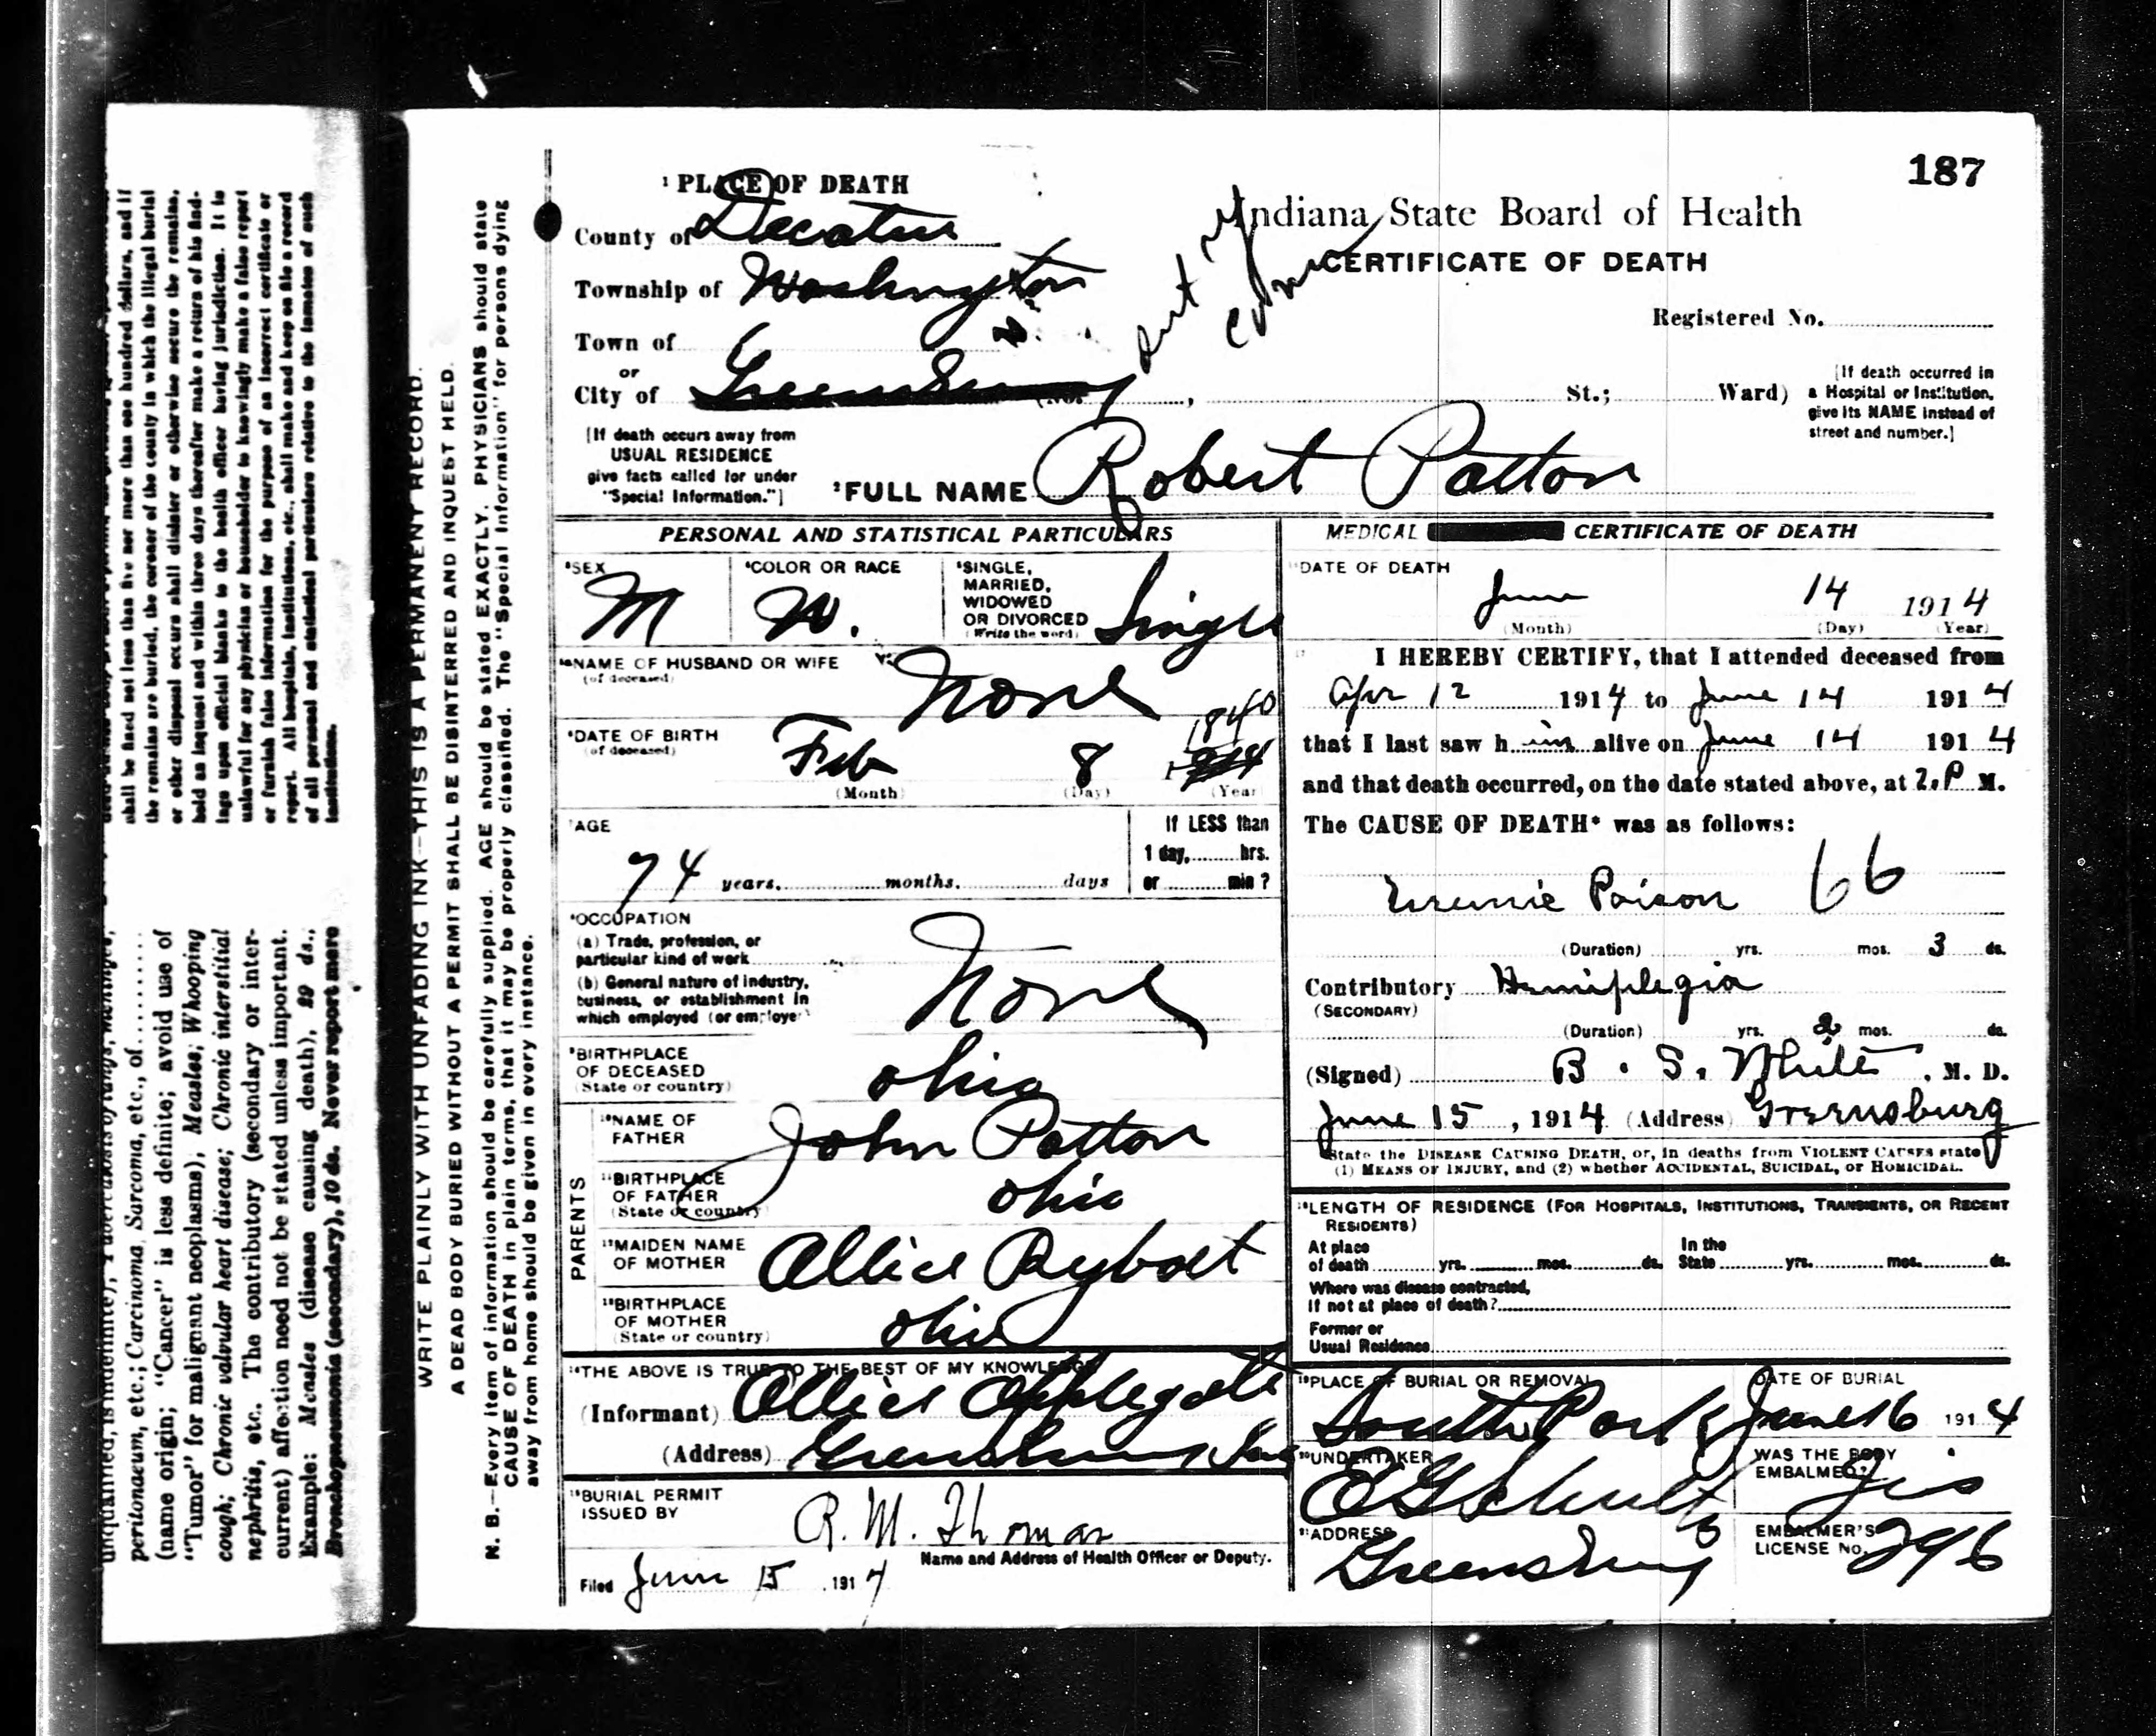 187
¹ PLACE OF DEATH
County of Decatur
Township of Washington
Town of
or
City of Greensburg (No. , St.; Ward)
Indiana State Board of Health
CERTIFICATE OF DEATH
Registered No.
[If death occurred in
a Hospital or Institution,
give its NAME instead of
street and number.]
[If death occurs away from
USUAL RESIDENCE
give facts called for under
"Special Information."]
²FULL NAME Robert Patton
PERSONAL AND STATISTICAL PARTICULARS
SEX
M
COLOR OR RACE
W.
SINGLE,
MARRIED,
WIDOWED
OR DIVORCED
(Write the word)
Single
NAME OF HUSBAND OR WIFE
(of deceased)
None
DATE OF BIRTH
(of deceased)
Feb 8 1840
(Month) (Day) (Year)
AGE
74 years. months. days
If LESS than
1 day, hrs.
or min?
OCCUPATION
(a) Trade, profession, or
particular kind of work
(b) General nature of industry,
business, or establishment in
which employed (or employer)
None
BIRTHPLACE
OF DECEASED
(State or country)
ohio
PARENTS
NAME OF
FATHER
John Patton
BIRTHPLACE
OF FATHER
(State or country)
ohio
MAIDEN NAME
OF MOTHER
Allice Rybolt
BIRTHPLACE
OF MOTHER
(State or country)
ohio
THE ABOVE IS TRUE TO THE BEST OF MY KNOWLEDGE
(Informant) Allice Applegate
(Address) Greensburg Ind
BURIAL PERMIT
ISSUED BY
R. M. Thomas
Name and Address of Health Officer or Deputy.
Filed June 15, 1914
MEDICAL CERTIFICATE OF DEATH
DATE OF DEATH
June 14 1914
(Month) (Day) (Year)
I HEREBY CERTIFY, that I attended deceased from
Apr 12 1914 to June 14 1914
that I last saw him alive on June 14 1914
and that death occurred, on the date stated above, at 2.P M.
The CAUSE OF DEATH* was as follows:
Uremic Poison 66
(Duration) yrs. mos. 3 ds.
Contributory Hemiplegia
(SECONDARY)
(Duration) yrs. 2 mos. ds.
(Signed) B. S. White, M. D.
June 15, 1914 (Address) Greensburg
State the DISEASE CAUSING DEATH, or, in deaths from VIOLENT CAUSES state
(1) MEANS OF INJURY, and (2) whether ACCIDENTAL, SUICIDAL, or HOMICIDAL.
LENGTH OF RESIDENCE (FOR HOSPITALS, INSTITUTIONS, TRANSIENTS, OR RECENT
RESIDENTS)
At place
of death yrs. mos. ds.
In the
State yrs. mos. ds.
Where was disease contracted,
If not at place of death?
Former or
Usual Residence
PLACE OF BURIAL OR REMOVAL
South Park
DATE OF BURIAL
June 16 1914
UNDERTAKER
WAS THE BODY
EMBALMED?
Yes
ADDRESS
Greensburg
EMBALMER'S
LICENSE No.
296
WRITE PLAINLY WITH UNFADING INK—THIS IS A PERMANENT RECORD.
A DEAD BODY BURIED WITHOUT A PERMIT SHALL BE DISINTERRED AND INQUEST HELD.
N. B.—Every item of information should be carefully supplied. AGE should be stated EXACTLY. PHYSICIANS should state
CAUSE OF DEATH in plain terms, that it may be properly classified. The "Special Information" for persons dying
away from home should be given in every instance.
shall be fined not less than five nor more than one hundred dollars, and if
the remains are buried, the coroner of the county in which the illegal burial
or other disposal occurs shall disinter or otherwise secure the remains,
hold an inquest and within three days thereafter make a return of his find-
ings upon official blanks to the health officer having jurisdiction. It is
unlawful for any physician or householder to knowingly make a false report
or furnish false information for the purpose of an incorrect certificate or
report. All hospitals, institutions, etc., shall make and keep on file a record
of all personal and statistical particulars relative to the inmates of such
institutions.
peritonaeum, etc.; Carcinoma, Sarcoma, etc., of ..........
(name origin; "Cancer" is less definite; avoid use of
"Tumor" for malignant neoplasms); Measles; Whooping
cough; Chronic valvular heart disease; Chronic interstitial
nephritis, etc. The contributory (secondary or inter-
current) affection need not be stated unless important.
Example: Measles (disease causing death), 29 ds.;
Bronchopneumonia (secondary), 10 ds. Never report mere